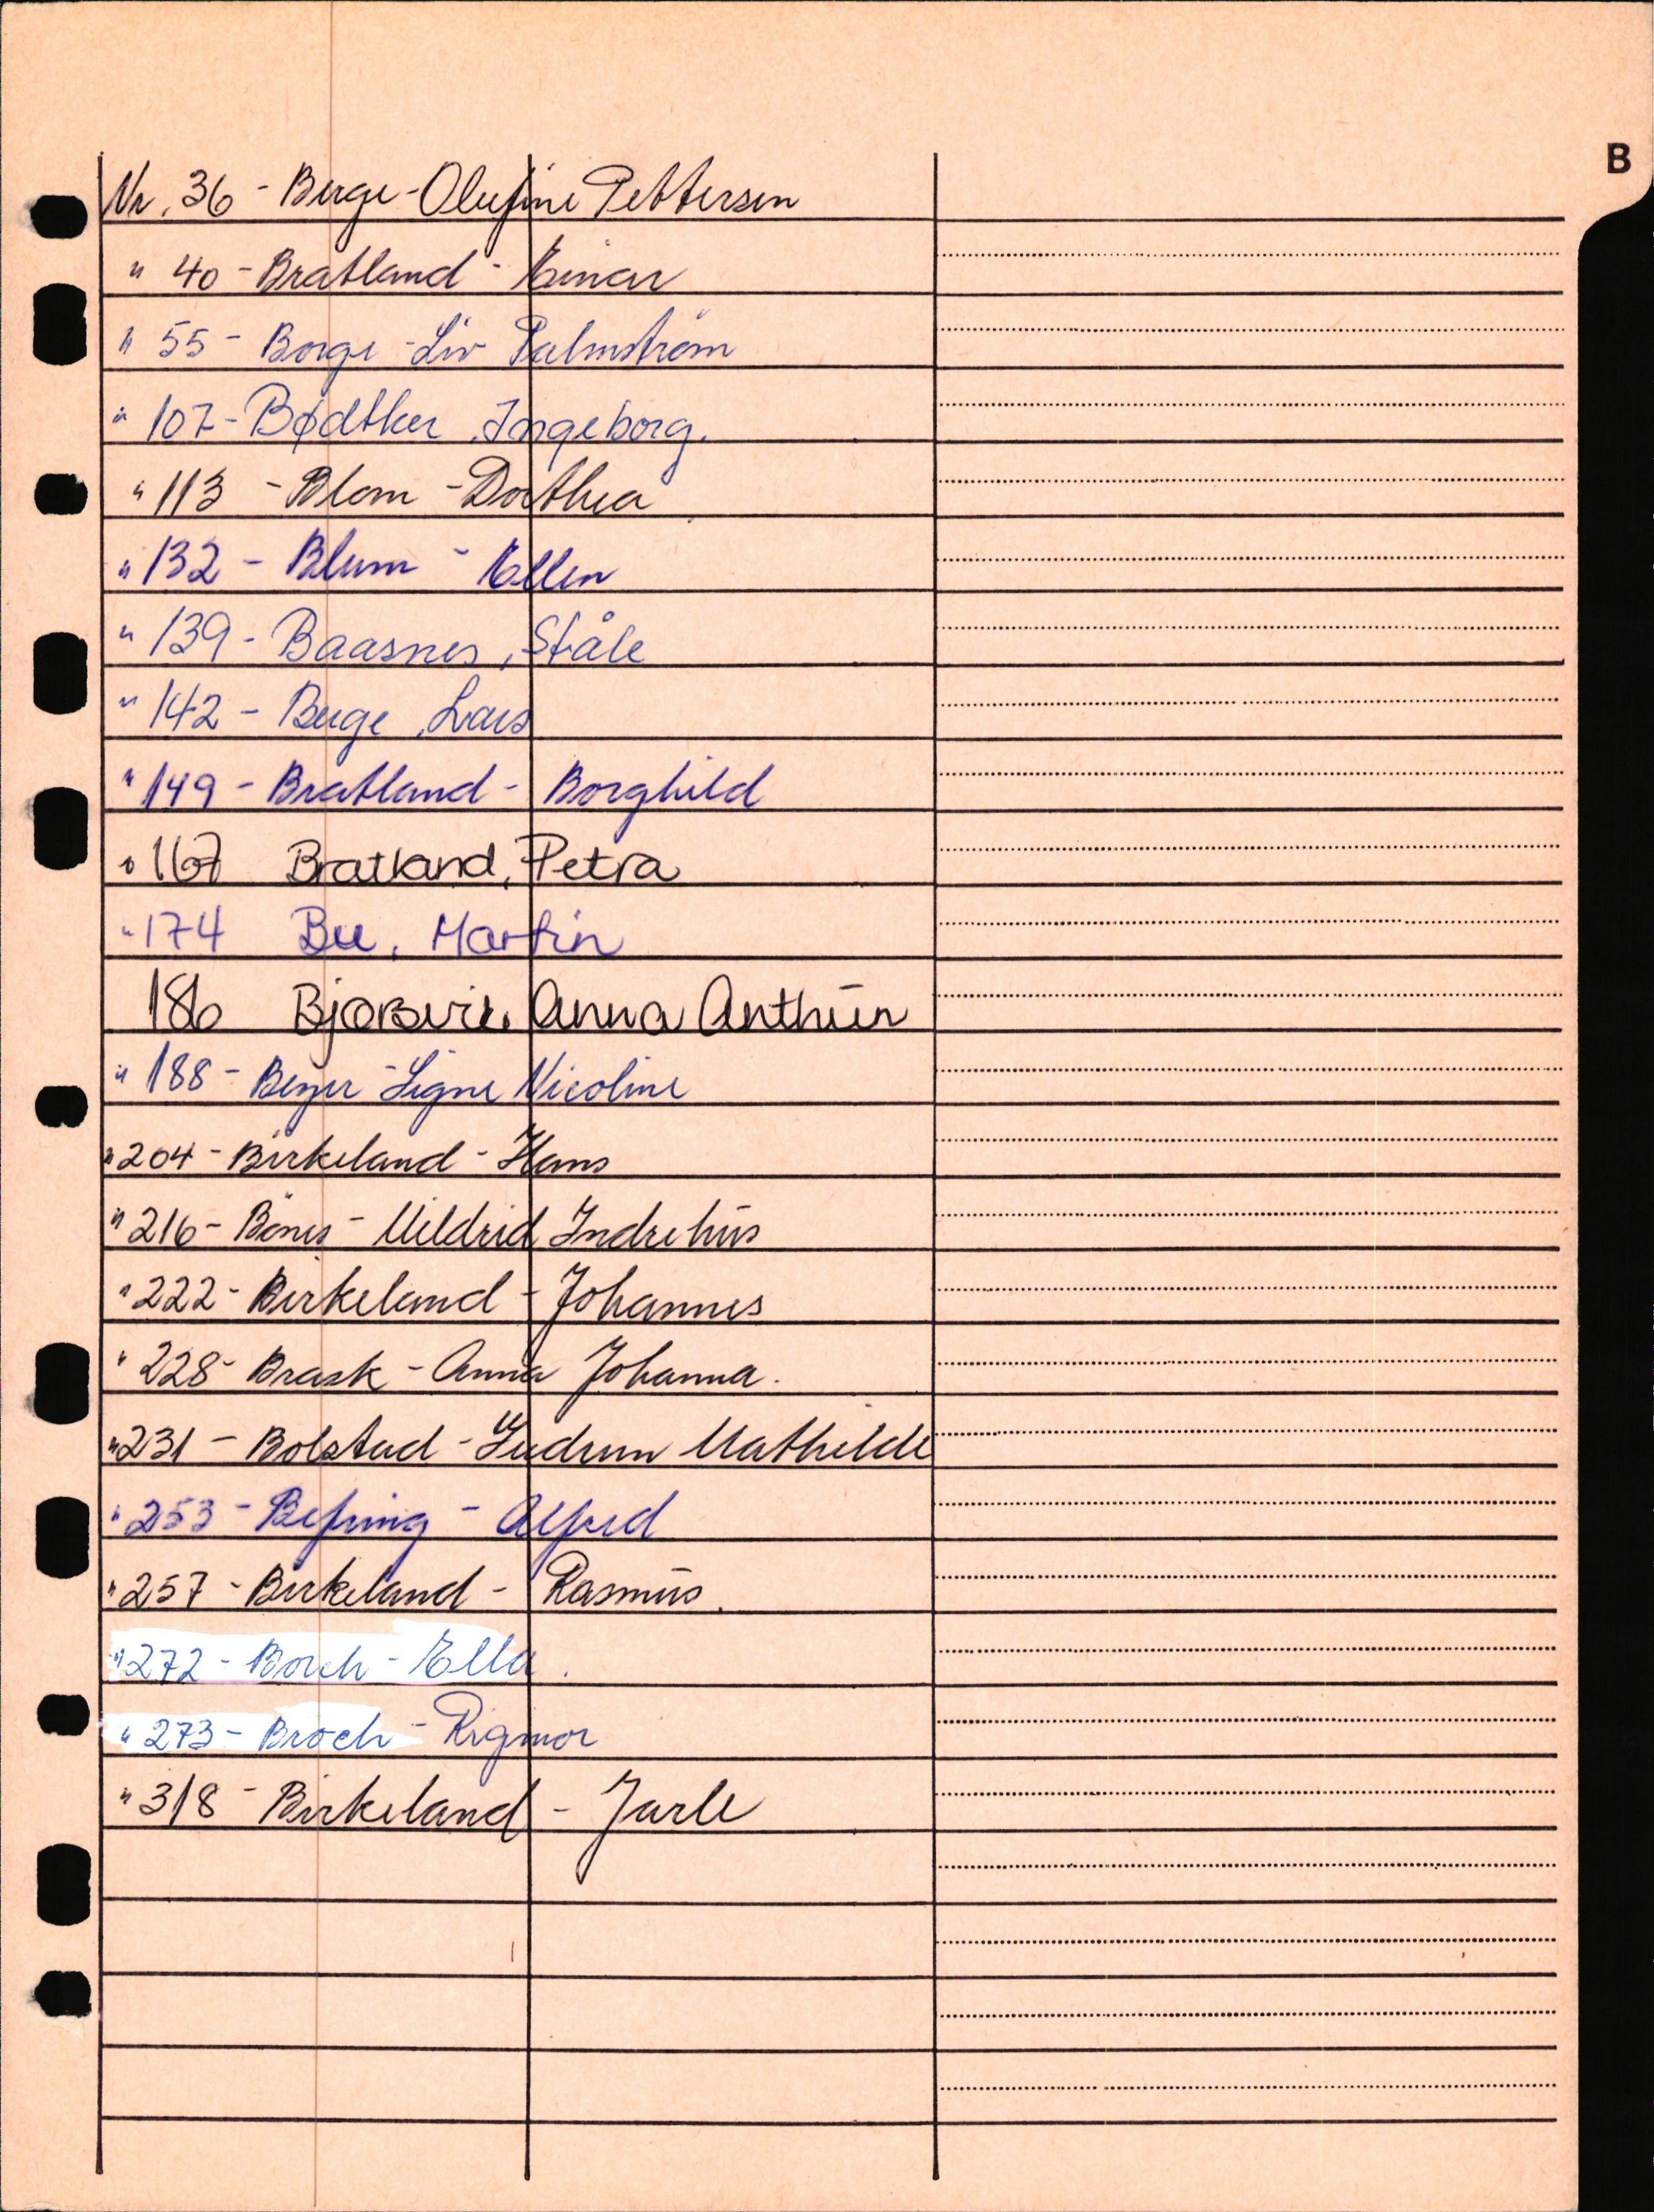 B
Nr. 36 - Berge - Olufine Pettersen
" 40 - Bratland - Einar
" 55 - Borge - Liv Palmström
" 107 - Bødtker, Ingeborg.
" 113 - Blom - Dorthea
" 132 - Blum - Ellen
" 139 - Baasnes, Ståle
" 142 - Berge, Lars
" 149 - Bratland - Borghild
" 167 Bratland, Petra
" 174 Bu, Martin
186 Anna Anthun
" 188 - Beyer - Signe Nicoline
" 204 - Birkeland - Hans
" 216 - Bönes - Mildrid Indrehus
" 222 - Birkeland - Johannes
" 228 - Brask - Anna Johanna.
" 231 - Bolstad - Gudrun Mathilde
" 253 - Befring - Alfred
" 257 - Birkeland - Rasmus.
" 272 - Borch - Ella.
" 273 - Broch - Rigmor
" 318 - Birkeland - Jarle